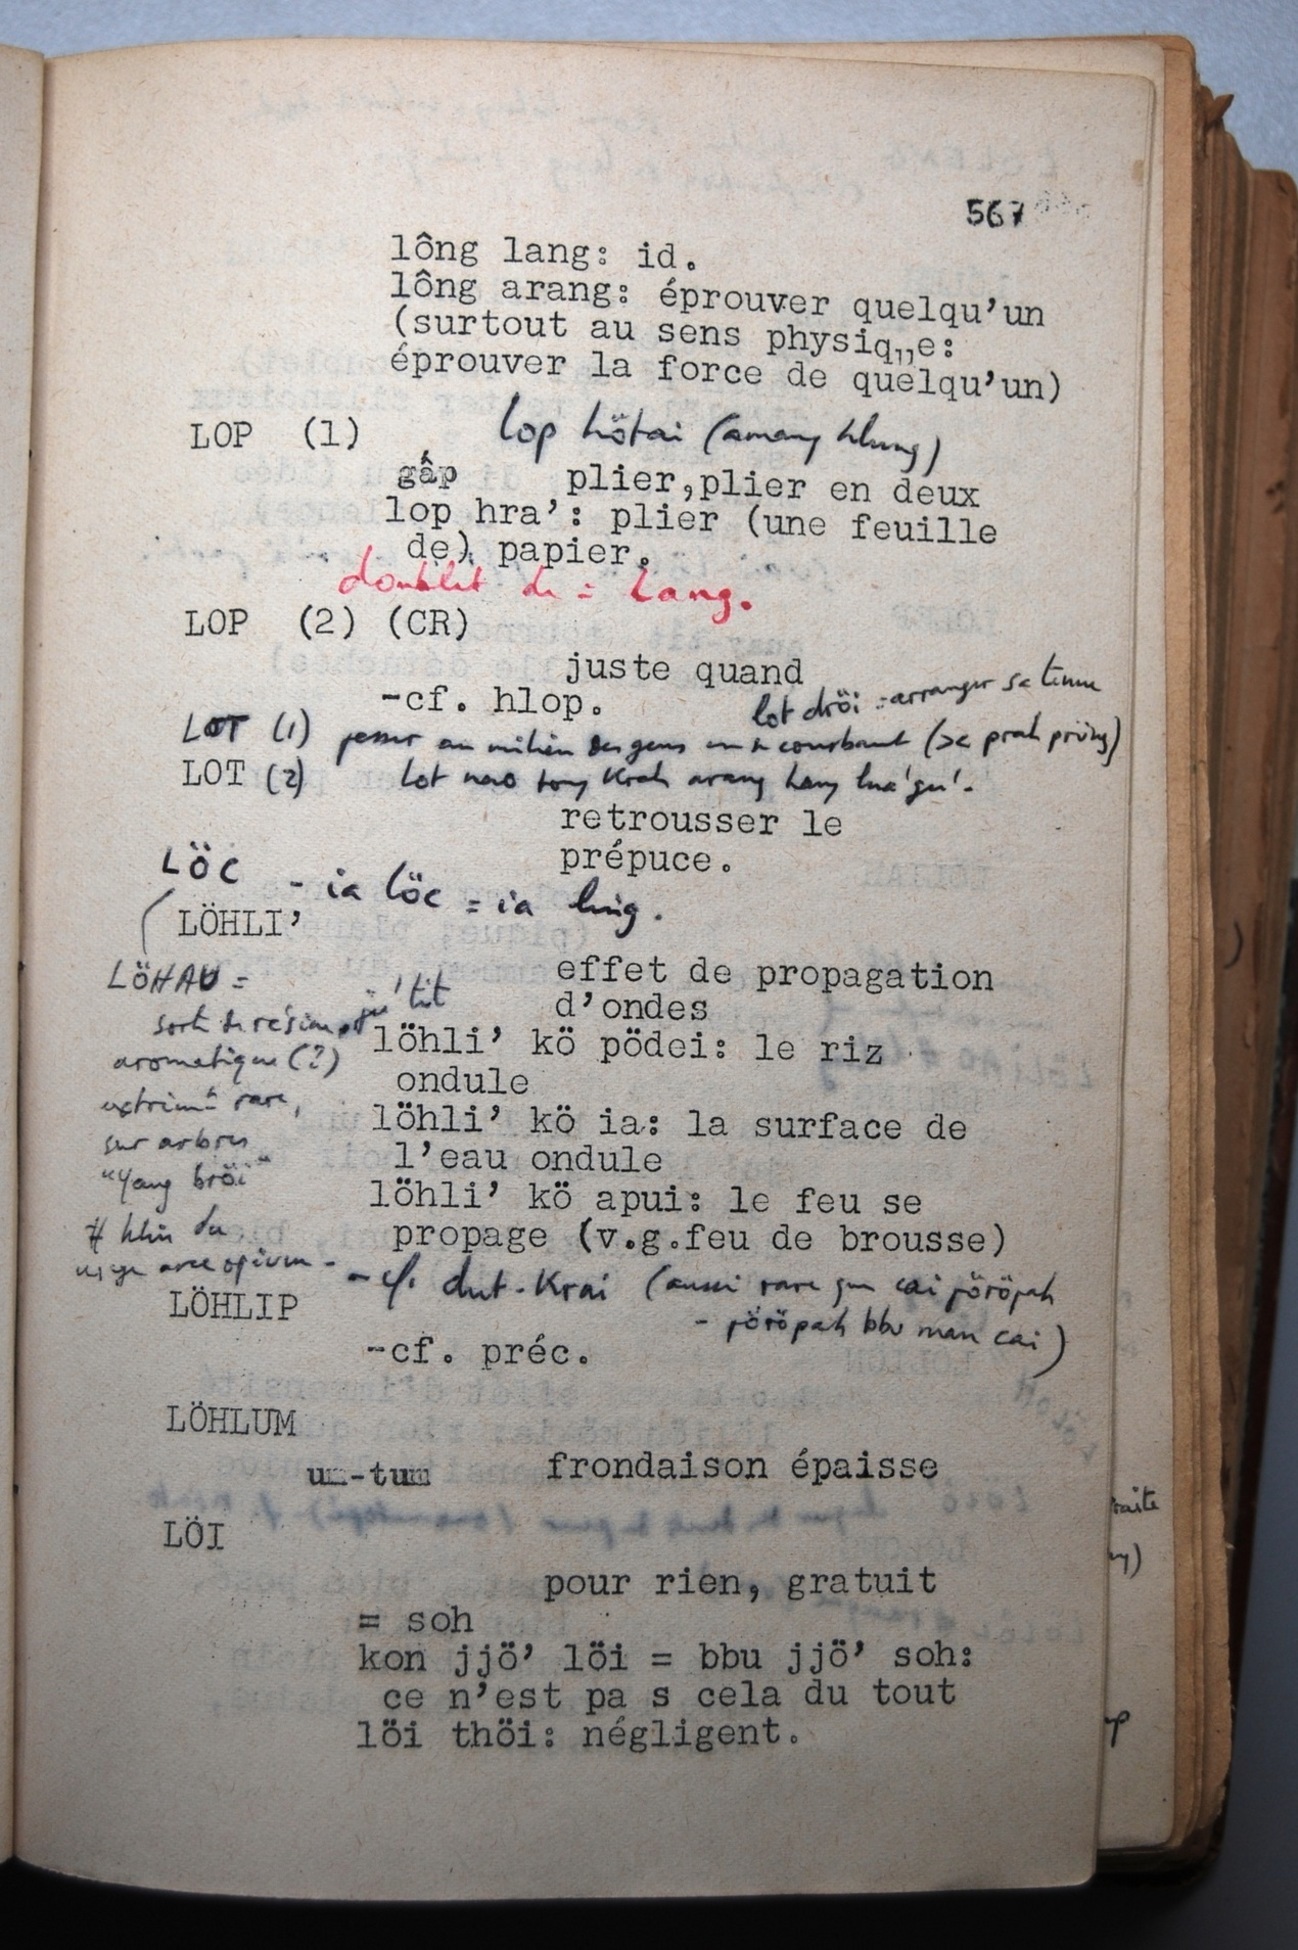 567
lông lang: id.
lông arang: éprouver quelqu'un
(surtout au sens physiq,,e:
éprouver la force de quelqu'un)
LOP (1) lop hötai (amang hlung)
gấp plier,plier en deux
lop hra': plier (une feuille
de) papier.
doublet de = lang.
LOP (2) (CR)
juste quand
-cf. hlop.
lot dröi = arranger sa tenue
LOT (1) passer au milieu des gens en se courbant
LOT (2) lot nao tong krah arang
retrousser le
prépuce.
LÖC - ia löc = ia
LÖHLI'
effet de propagation
d'ondes
löhli' kö pödei: le riz
ondule
löhli' kö ia: la surface de
l'eau ondule
löhli' kö apui: le feu se
propage (v.g.feu de brousse)
LÖHAU =
sorte de résine
aromatique (?)
extrêmt rare,
sur arbres
"Yang bröi"
avec opium -
- cf. dut-Krai (aussi rare que cai pöröpah
- pöröpah bbu man cai)
LÖHLIP
-cf. préc.
LÖHLUM
um-tum frondaison épaisse
LÖI
pour rien, gratuit
= soh
kon jjö' löi = bbu jjö' soh:
ce n'est pa s cela du tout
löi thöi: négligent.